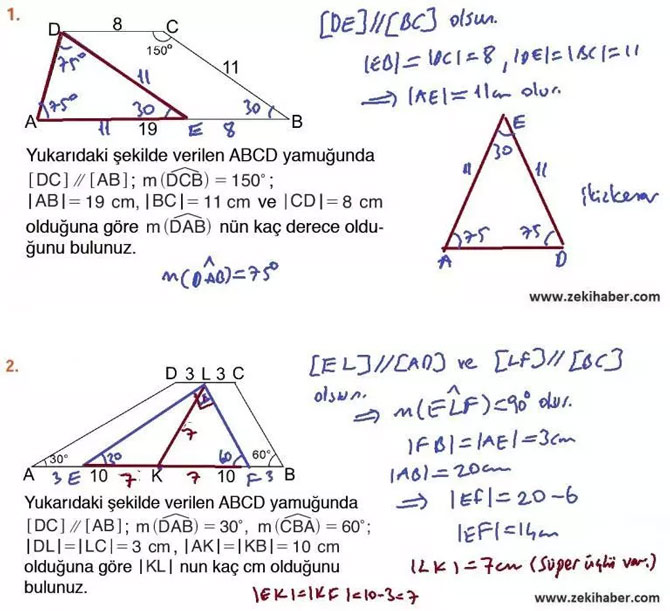 1.
[DE]//[BC] olsun.
|EB|=|DC|=8, |DE|=|BC|=11
⇒ |AE|=11cm olur.
D 8 C
150°
75°
11
11
75°
30
30
A
11
19
E
8
B
E
30
11
11
75
75
A
D
İkizkenar
Yukarıdaki şekilde verilen ABCD yamuğunda
[DC] // [AB]; m(DCB) = 150°;
|AB|= 19 cm, |BC|= 11 cm ve |CD|= 8 cm
olduğuna göre m(DAB) nün kaç derece oldu-
ğunu bulunuz.
m(DAB)=75°
www.zekihaber.com
2.
[EL]//[AD] ve [LF]//[BC]
olsun.
⇒ m(ELF)=90° olur.
|FB|=|AE|=3cm
|AB|=20cm
⇒ |EF|=20-6
|EF|=14cm
|LK|=7cm (Süper üçlü var.)
D 3 L 3 C
7
30°
30
60
60°
A
3
E
10
7
K
7
10
F
3
B
Yukarıdaki şekilde verilen ABCD yamuğunda
[DC] // [AB]; m(DAB) = 30°, m(CBA) = 60°;
|DL|=|LC|= 3 cm, |AK|=|KB|= 10 cm
olduğuna göre |KL| nun kaç cm olduğunu
bulunuz.
|EK|=|KF|=10-3=7
www.zekihaber.com